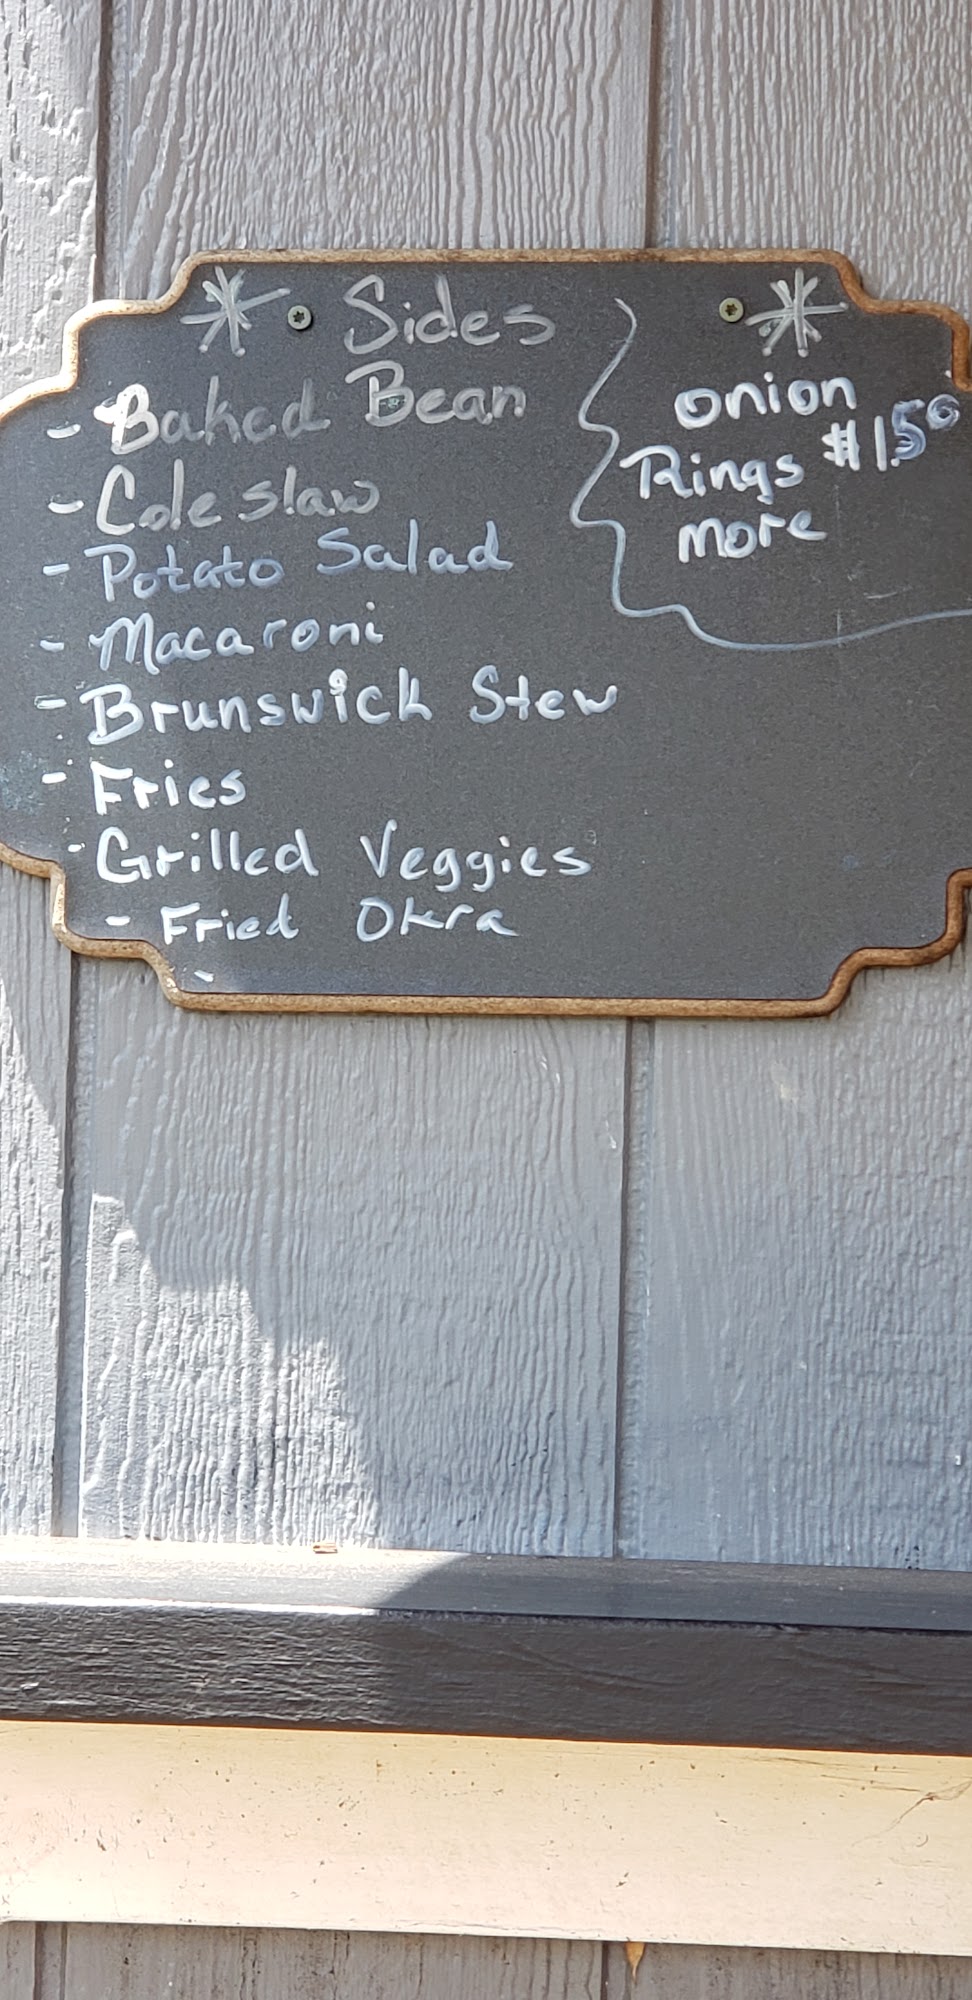 Sides
- Baked Bean
- Coleslaw
- Potato Salad
- Macaroni
- Brunswick Stew
- Fries
- Grilled Veggies
- Fried Okra
-
onion
Rings $1.50
more